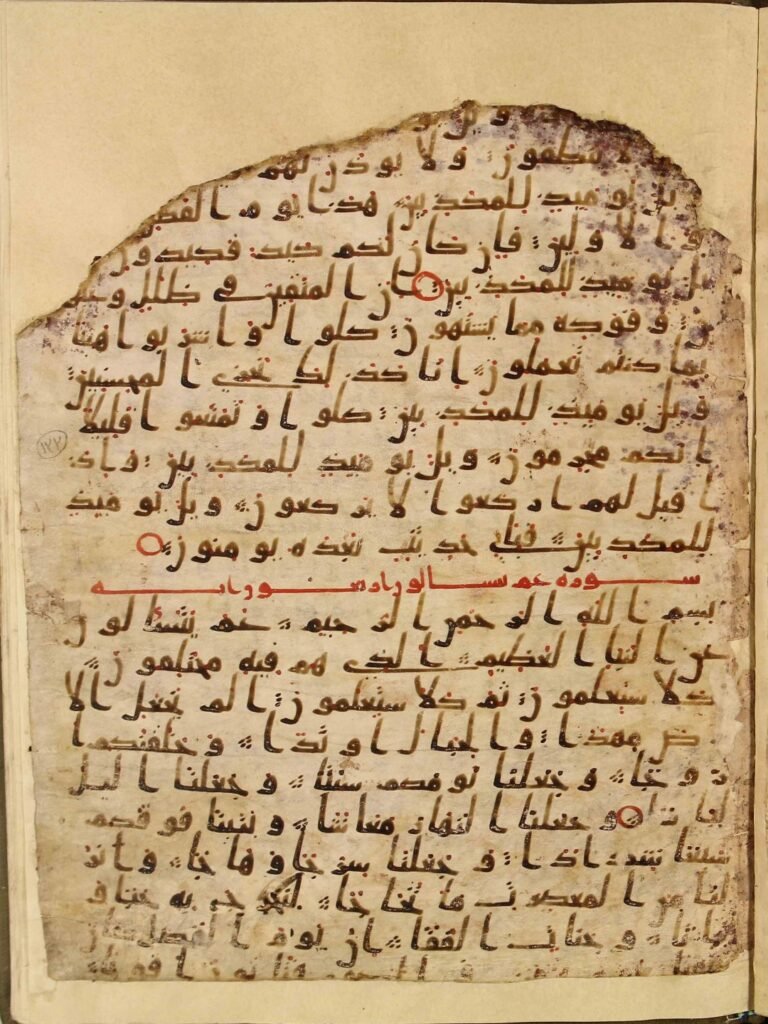 و يل يو
لا ينطقون ولا يوذن لهم
يل يوميذ للمكذبين هذا يوم الفصل
و الاولين فان كان لكم كيد فكيدون
يل يوميذ للمكذبين ان المتقين في ظلل وعيو
ن وفوكه مما يشتهون كلوا واشربوا هنيا
بما كنتم تعملون انا كذلك نجزي المحسنين
ويل يوميذ للمكذبين كلوا وتمتعوا قليلا
١٢٢
انكم مجرمون ويل يوميذ للمكذبين واذ
ا قيل لهم اركعوا لا يركعون ويل يوميذ
للمكذبين فباي حديث بعده يومنون
سوره عم يسالون اربعون ايه
بسم الله الرحمن الرحيم عم يتسالون
عن النبا العظيم الذي هم فيه مختلفون
كلا سيعلمون ثم كلا سيعلمون الم نجعل الا
رض مهدا والجبال اوتدا وخلقنكم ا
زوجا وجعلنا نومكم سبتا وجعلنا اليل
لباسا وجعلنا النهار معاشا وبنينا فوقكم
سبعا شددا وجعلنا سرجا وهاجا وانز
لنا من المعصرت ما ثجاجا لنخرج به حبا و
نباتا وجنت الفافا ان يوم الفصل كان